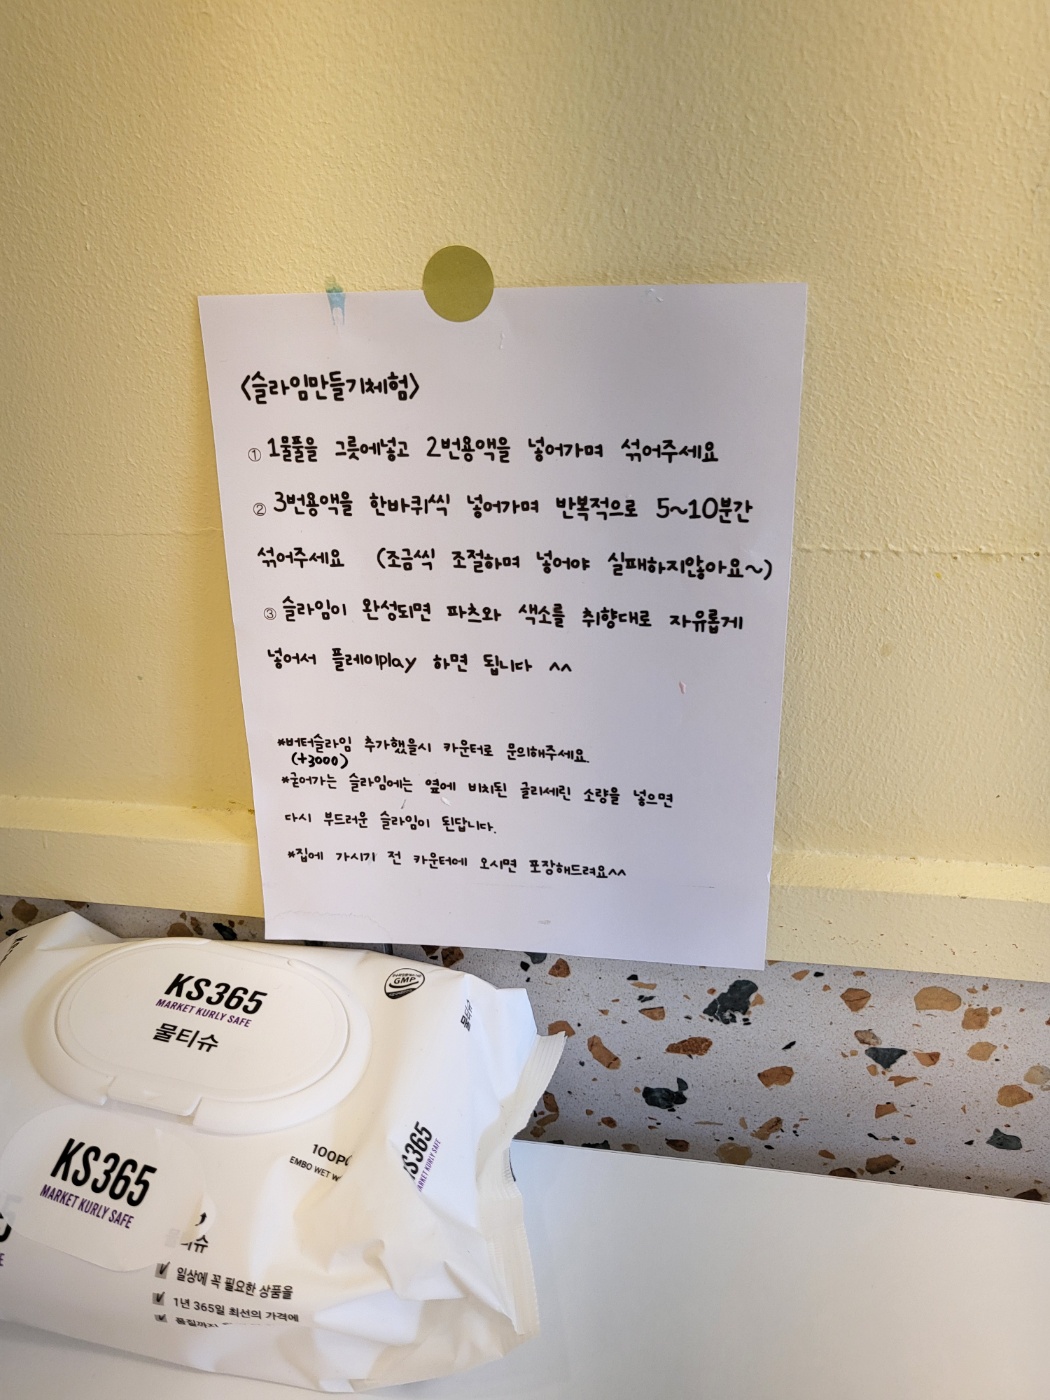 <슬라임만들기체험>
① 1물풀을 그릇에넣고 2번용액을 넣어가며 섞어주세요
② 3번용액을 한바퀴씩 넣어가며 반복적으로 5~10분간
섞어주세요 (조금씩 조절하며 넣어야 실패하지않아요~)
③ 슬라임이 완성되면 파츠와 색소를 취향대로 자유롭게
넣어서 플레이play 하면 됩니다 ^^
*버터슬라임 추가했을시 카운터로 문의해주세요.
(+3000)
*굳어가는 슬라임에는 옆에 비치된 글리세린 소량을 넣으면
다시 부드러운 슬라임이 된답니다.
*집에 가시기 전 카운터에 오시면 포장해드려요^^
KS365
MARKET KURLY SAFE
물티슈
GMP
물티슈
KS365
MARKET KURLY SAFE
EMBO WET
KS365
MARKET KURLY SAFE
일상에 꼭 필요한 상품을
1년 365일 최선의 가격에